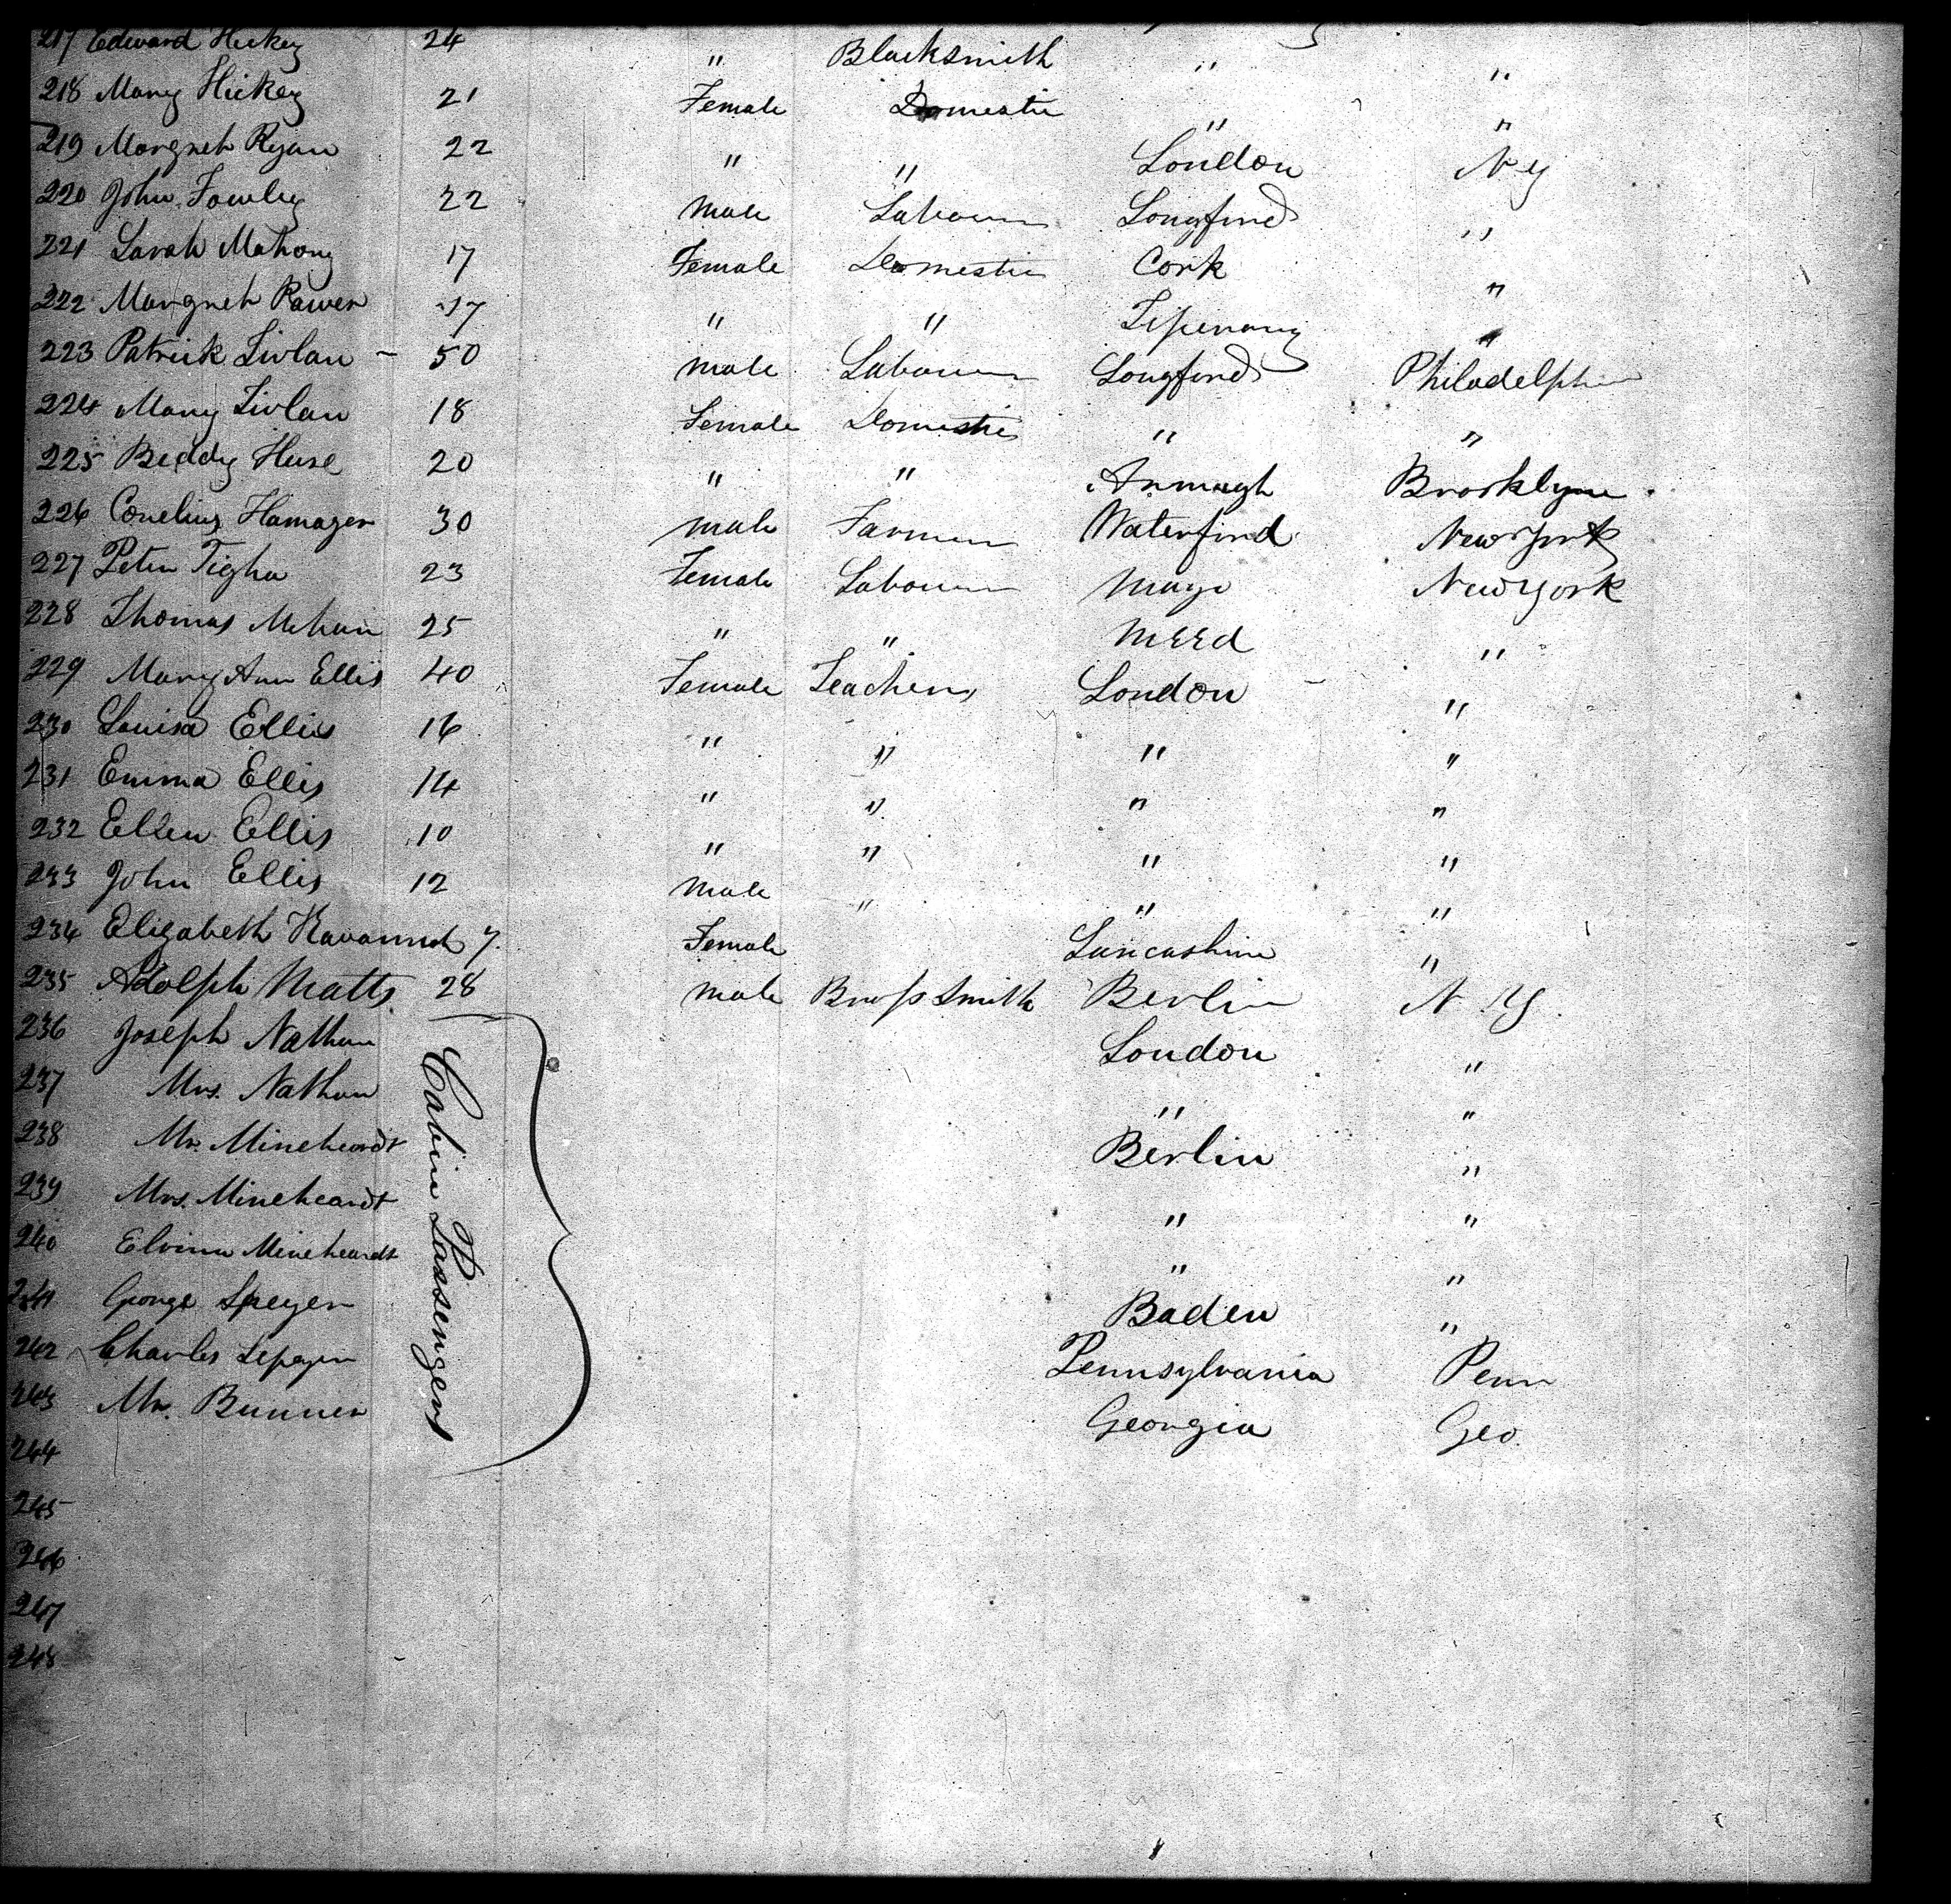 217 Edward Hickey 24 " Blacksmith " "
218 Mary Hickey 21 Female Domestic " "
219 Margret Ryan 22 " " London N Y
220 John Fowley 22 male Labourer Longford "
221 Sarah Mahony 17 Female Domestic Cork "
222 Margret Power 17 " " Tiperary "
223 Patrick Livlan - 50 male Labourer Longford Philadelphia
224 Mary Livlan 18 Female Domestic " "
225 Biddy Huse 20 " " Armagh Brooklyne
226 Conelius Hamager 30 male Farmer Waterford New York
227 Peter Tigha 23 Female Labourer Mayo New York
228 Thomas Mehan 25 " " Meed "
229 Mary Ann Ellis 40 Female Teacher London "
230 Louisa Ellis 16 " " " "
231 Emma Ellis 14 " " " "
232 Ellen Ellis 10 " " " "
233 John Ellis 12 male " " "
234 Elizabeth Kavannah 7 Female Lancashire "
235 Adolph Matts 28 male Brass Smith Berlin N. Y.
236 Joseph Nathan London "
237 Mrs. Nathan " "
238 Mr. Mineheardt Berlin "
239 Mrs. Mineheardt " "
240 Elvina Mineheardt " "
241 George Speyer Baden "
242 Charles Pennsylvania Penn
243 Mr. Bunner Georgia Geo.
Cabin Passengers
244
245
246
247
248